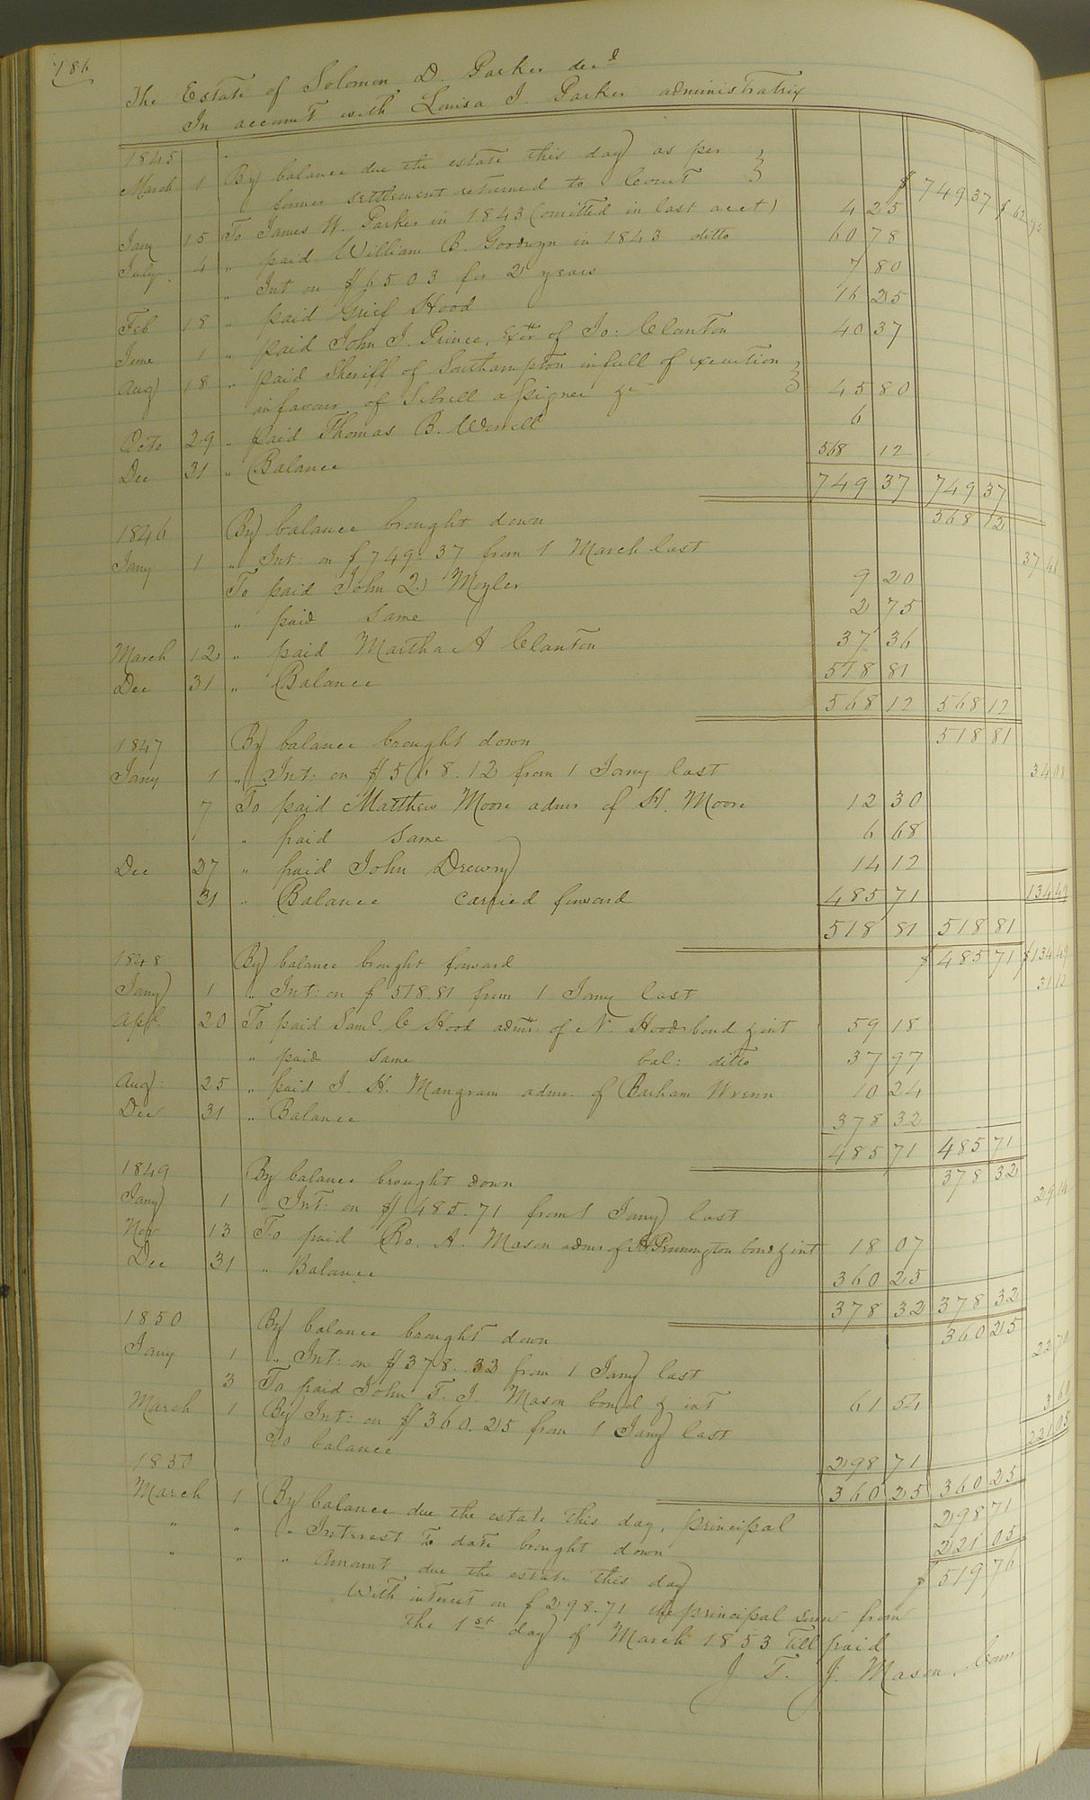 186
The Estate of Solomon D. Parker decd
In account with Louisa J. Parker administratrix
1845
March 1 By balance due the estate this day as per
former settlement returned to Court $ 749 37 $ 62
Jany 15 To James W. Parker in 1843 (omitted in last acct) 4 25
July 4 " paid William B. Goodwyn in 1843 ditto 60 78
" Int on $65 03 for 2 years 7 80
Feb 18 " paid Grief Hood 16 25
June 1 " paid John J. Prince, Exr of Jo: Clanton 40 37
Aug 18 " paid Sheriff of Southampton in full of execution
in favour of assignee &c 45 80
Octo 29 " paid Thomas B. 6
Dec 31 " Balance 568 12
749 37 749 37
1846 By balance brought down 568 12
Jany 1 " Int: on $749.37 from 1 March last 37 46
To paid John Q. Moyler 9 20
" paid same 2 75
March 12 " paid Martha A Clanton 37 36
Dec 31 " Balance 518 81
568 12 568 12
1847 By balance brought down 518 81
Jany 1 " Int: on $568.12 from 1 Jany last 34 08
7 To paid Matthew Moore admr of H. Moore 12 30
" paid same 6 68
Dec 27 " paid John Drewry 14 12
31 " Balance carried forward 485 71 134 49
518 81 518 81
1848 By balance brought forward $ 485 71 $134 49
Jany 1 " Int: on $518.81 from 1 Jany last 31 12
Apl 20 To paid Saml. C Hood admr of N. Hood bond & int 59 18
" paid same bal: ditto 37 97
Aug 25 " paid J. H. Mangram admr. of Barham Wrenn 10 24
Dec 31 " Balance 378 32
485 71 485 71
1849 By balance brought down 378 32
Jany 1 " Int: on $485.71 from 1 Jany last 29 14
Nov 13 To paid Ro. A. Mason admr of Pennington bond & int 18 07
Dec 31 " Balance 360 25
378 32 378 32
1850 By balance brought down 360 25
Jany 1 " Int: on $378.32 from 1 Jany last 22 70
3 To paid John T. J. Mason bond & int 61 54
March 1 By Int: on $360.25 from 1 Jany last 3 60
To balance 298 71 221 05
360 25 360 25
1850
March 1 By balance due the estate this day, principal 298 71
" " " Interest to date brought down 221 05
" " " Amount due the estate this day $ 519 76
With interest on $298.71 the principal sum from
the 1st day of March 1853 till paid
J. T. J. Mason, Com